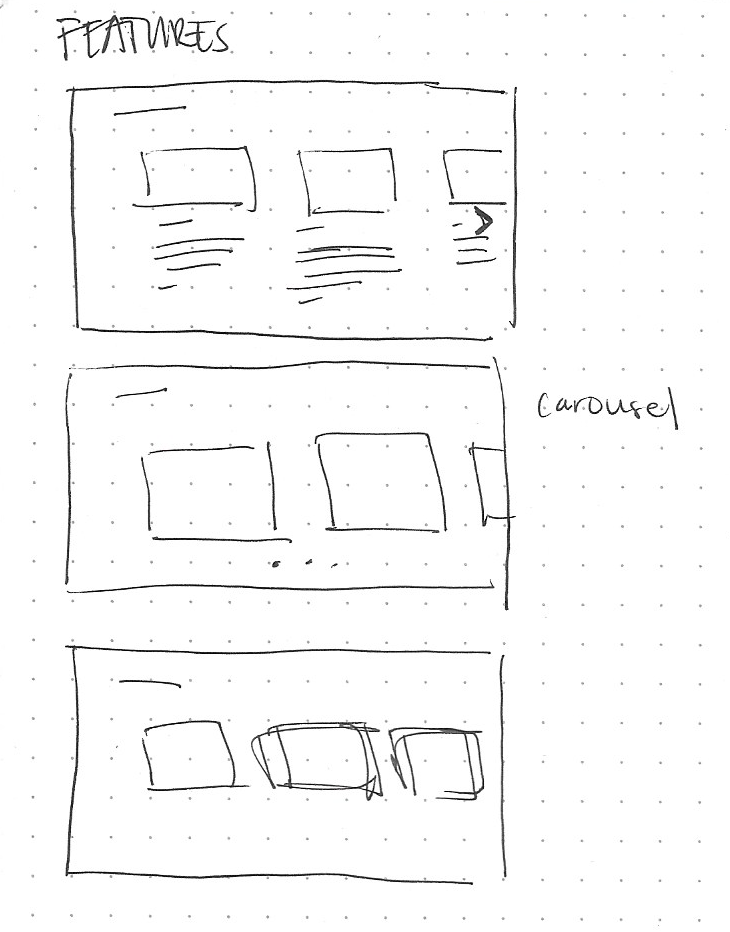 FEATURES
carousel